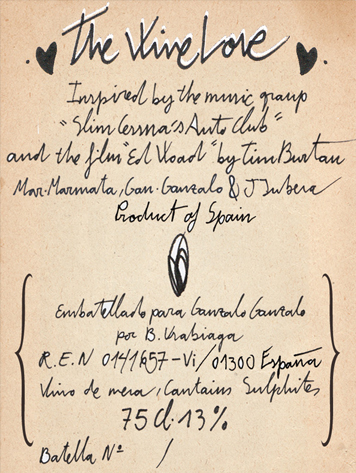 The Wine Love
Inspired by the music group
"Slim Cessna's Auto Club"
and the film "Ed Wood" by Tim Burton
Mar. Marmota, Gon. Gonzalo & J Jubera
Product of Spain
Embotellado para Gonzalo Gonzalo
por B. Urabiaga
R.E.N 0141657-Vi/01300 España
Vino de mesa, Contains Sulphites
75cl. 13%
Botella Nº /